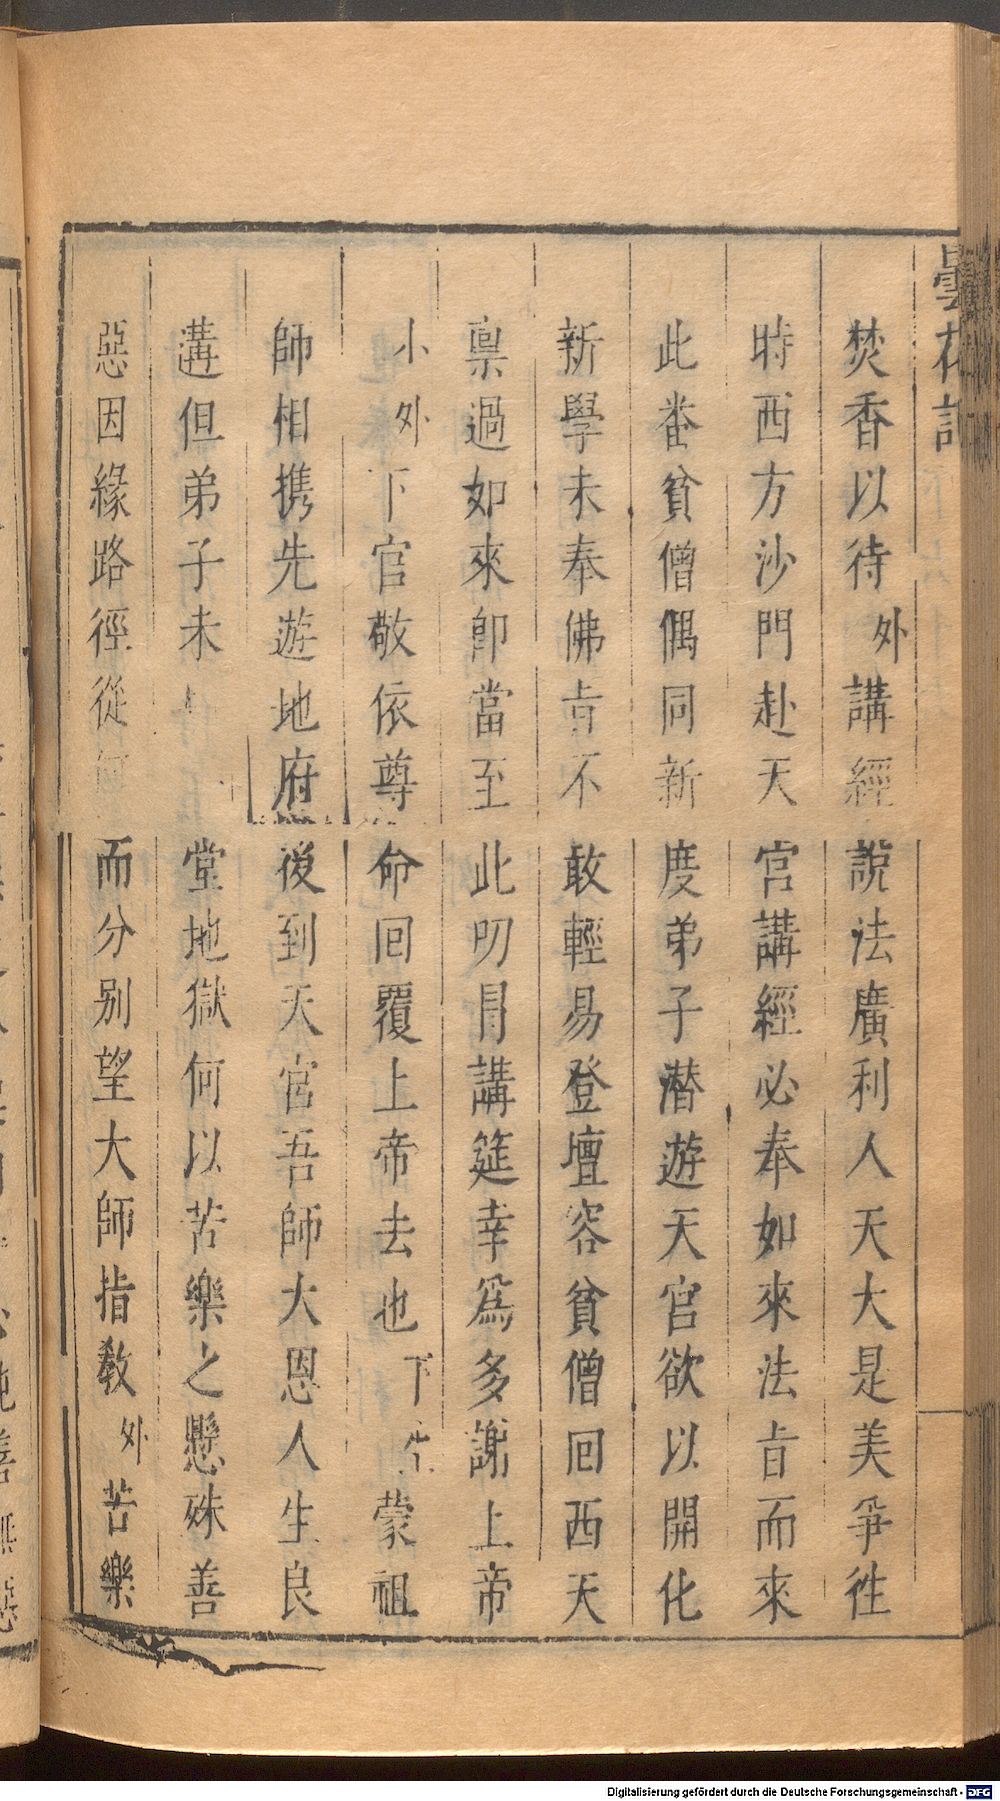 曇花記
焚香以待外講經說法廣利人天大是美爭徃
時西方沙門赴天宮講經必奉如來法旨而來
此番貧僧偶同新度弟子潛遊天宮欲以開化
新學未奉佛旨不敢輕易登壇容貧僧回西天
稟過如來卽當至此叨冐講筵幸爲多謝上帝
小外下官敬依尊命回覆上帝去也下生蒙祖
師相携先遊地府後到天宮吾師大恩人生良
遘但弟子未 堂地獄何以苦樂之懸殊善
惡因緣路徑從何而分别望大師指敎外苦樂
Digitalisierung gefördert durch die Deutsche Forschungsgemeinschaft - DFG